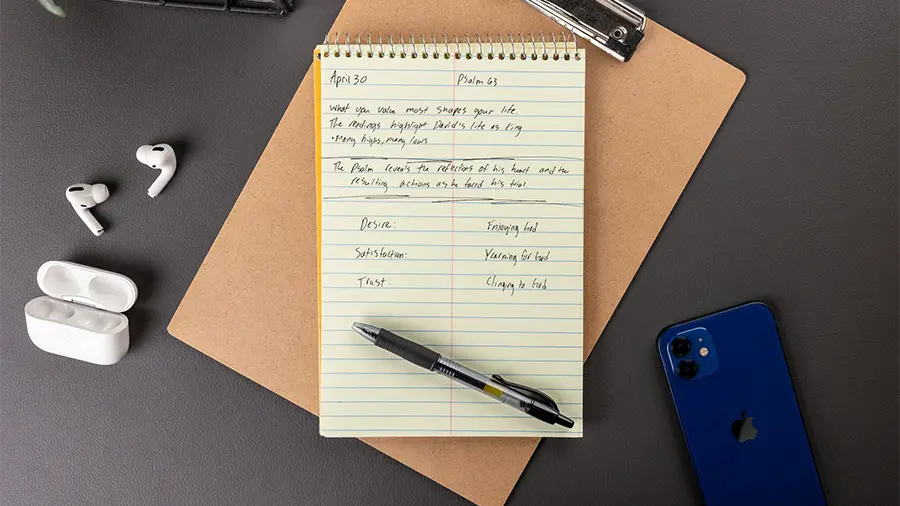 April 30 Psalm 63
What you value most shapes your life.
The readings highlight David's life as King
• Many highs, many lows
The Psalm reveals the reflections of his heart and the
resulting actions as he faced his trial.
Desire: Enjoying God
Satisfaction: Yearning for God
Trust: Clinging to God